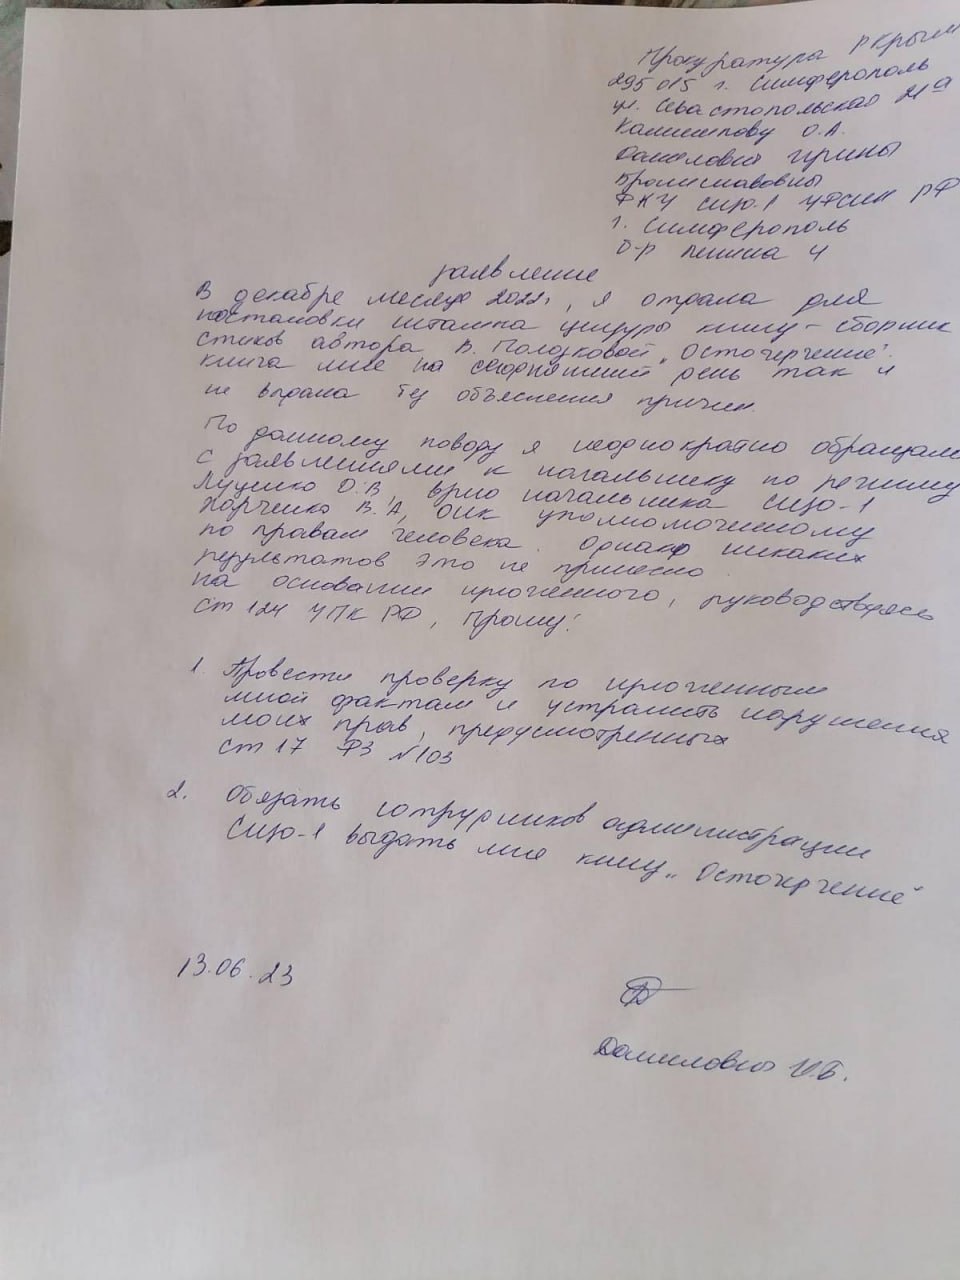 Прокуратура РКрым
295015 г. Симферополь
ул. Севастопольская 21а
Камшилову О.А.
Данилович Ирины
Брониславовны
ФКУ СИЗО-1 УФСИН РФ
г. Симферополь
б-р Ленина 4
заявление
В декабре месяце 2022г, я отдала для
постановки штампа цензуры книгу-сборник
стихов автора В. Полозковой „Осточерчение".
книга мне на сегодняшний день так и
не выдана без объяснения причин.
По данному поводу я неоднократно обращалась
с заявлениями к начальнику по режиму
Луценко О.В, врио начальника СИЗО-1
Харченко В.А, ОНК уполномоченному
по правам человека. Однако никаких
результатов это не принесло.
На основании изложенного, руководствуясь
ст 124 УПК РФ, прошу:
1. Провести проверку по изложенным
мной фактам и устранить нарушения
моих прав, предусмотренных
ст 17 ФЗ №103
2. Обязать сотрудников администрации
СИЗО-1 выдать мне книгу „Осточерчение"
13.06.23
Данилович И.Б.